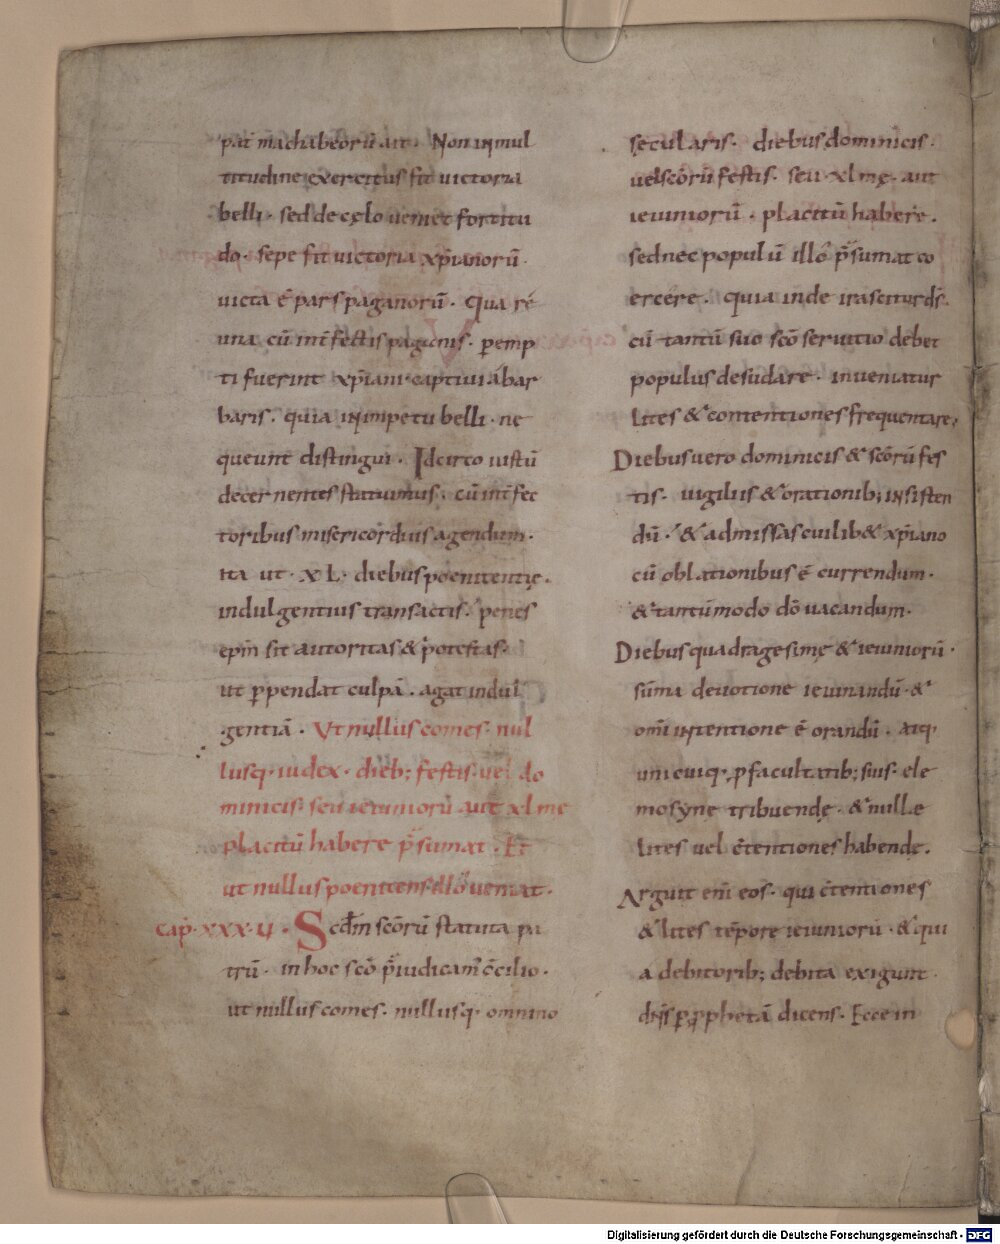 pat̄ machabeorū ait. Non in mul
titudine exercitus fit uictoria
belli. sed de cęlo uenit fortitu
do. sepe fit uictoria xp̄ianorū.
uicta ē pars paganorū. Qua rē
una cū int̄fectis paganis. peremp
ti fuerint xp̄iani captiui á bar
baris. quia in impetu belli. ne
queunt distingui. Idcirco iustū
decernentes statuimus. cū int̄fec
toribus misericordius agendum.
ita ut. XL. diebus poenitentię.
indulgentius transactis. penes
ep̄m sit autoritas & potestas.
ut ꝑpendat culpā. agat indul
gentiā. Ut nullus comes. nul
lusq. iudex. dieb; festis. uel do
minicis. seu ieiuniorū aut xlmę
placitū habere p̄sumat. Et
ut nullus poenitens illo ueniat.
cap. xxx.u. Scd̄m scōrū statuta pa
trū. in hoc scō p̄iudicam̄ c̄cilio.
ut nullus comes. nullusq. omnino
sęcularis. diebus dominicis.
uel scōrū festis. seu xlmę. aut
ieiuniorū. placitū habere.
sed nec populū illo p̄sumat co
ercere. quia inde irascitur dś.
cū tantū suo scō seruitio debet
populus desudare. inueniatur
lites & contentiones frequentare.
Diebus uero dominicis & scōrū fes
tis. uigiliis & orationib; insisten
dū. & ad missas cuilib& xp̄iano
cū oblationibus ē currendum.
& tantūmodo dō uacandum.
Diebus quadragesimę & ieiuniorū.
sūma deuotione ieiunandū. &
omī intentione ē orandū. atq.
unicuiq. p facultatib; suis. ele
mosyne tribuendę. & nullæ
lites uel c̄tentiones habende.
Arguit eni eos. qui c̄tentiones
& lites tēpore ieiuniorū. & qui
a debitorib; debita exigunt.
dn̄s ꝑ pphetā dicens. Ecce in
Digitalisierung gefördert durch die Deutsche Forschungsgemeinschaft - DFG